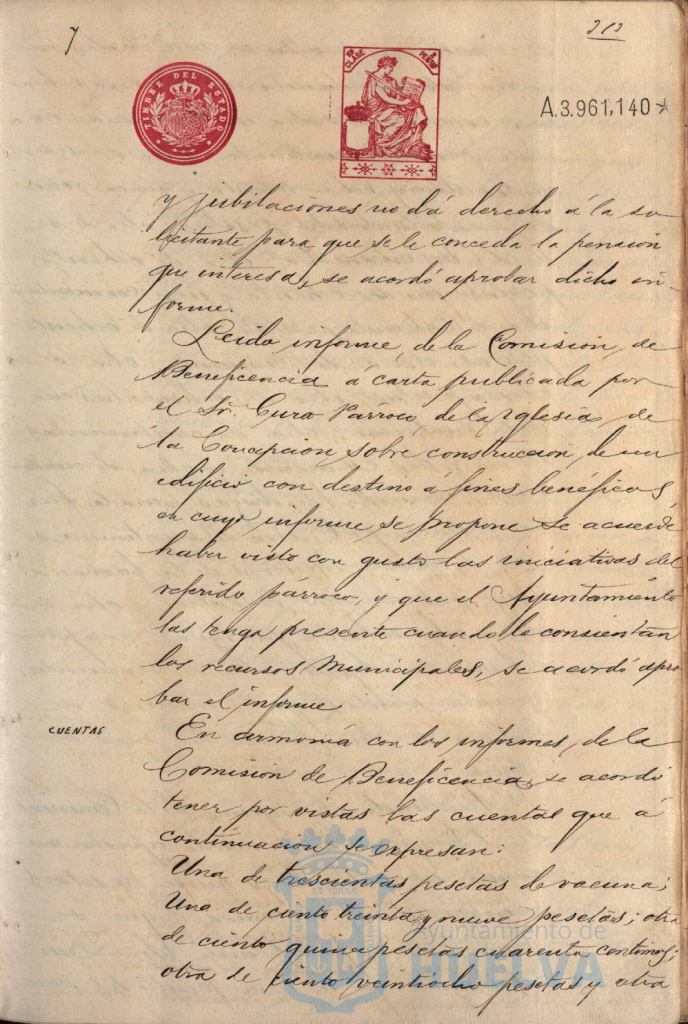 7
313
TIMBRE DEL ESTADO
10ª CLASE
PESTAS
A.3.961,140*
y jubilaciones no dá derecho á la so
licitante para que se le conceda la pensión
que interesa, se acordó aprobar dicho in-
forme.
Leido informe de la Comisión de
Beneficencia á carta publicada por
el Sr. Cura Párroco de la Iglesia de
la Concepción sobre construcción de un
edificio con destino á fines benéficos,
en cuyo informe se propone se acuerde
haber visto con gusto las iniciativas del
referido párroco, y que el Ayuntamiento
las tenga presente cuando le consientan
los recursos Municipales, se acordó apro
bar el informe
CUENTAS
En armonía con los informes de la
Comisión de Beneficencia, se acordó
tener por vistas las cuentas que á
continuación se expresan:
Una de trescientas pesetas de vacuna;
Una de ciento treinta y nueve pesetas; otra
de ciento quince pesetas cuarenta centimos;
otra de ciento veintiocho pesetas y otra
Ayuntamiento de
HUELVA